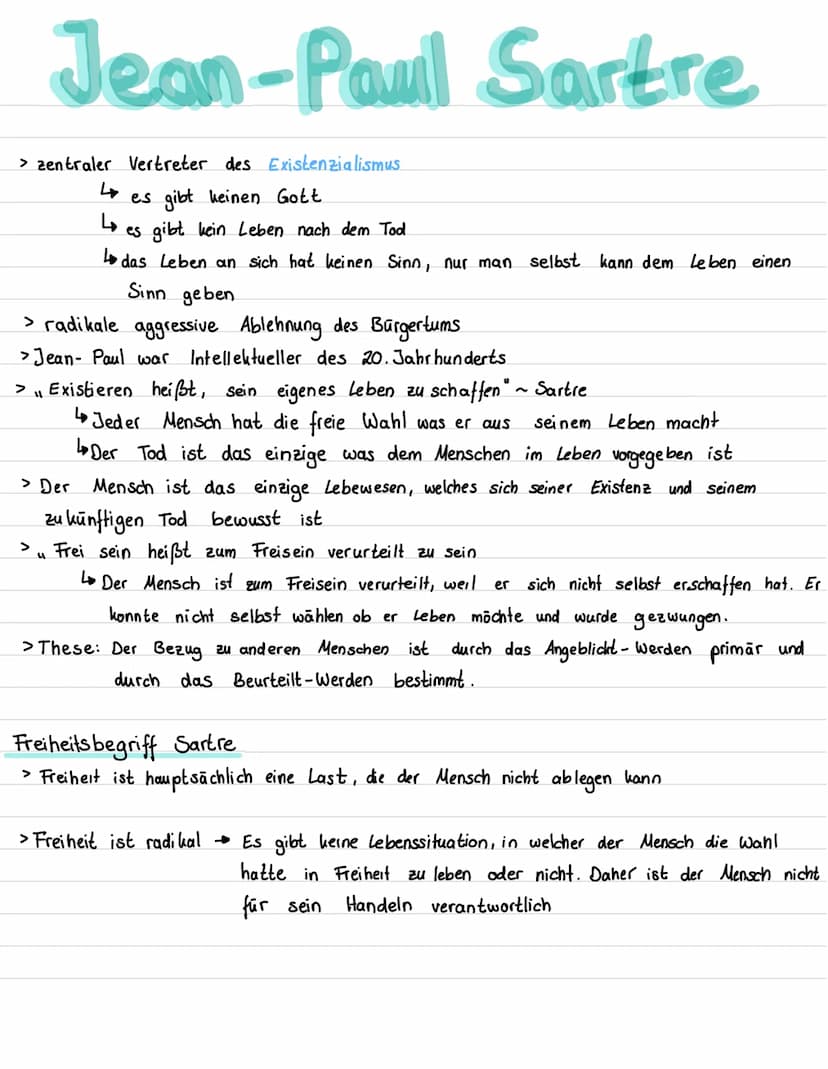 Jean-Paul Sartre
> zentraler Vertreter des Existenzialismus
↳ es gibt keinen Gott
↳ es gibt kein Leben nach dem Tod
↳ das Leben an sich hat keinen Sinn, nur man selbst kann dem Leben einen
Sinn geben
> radikale aggressive Ablehnung des Bürgertums
> Jean-Paul war Intellektueller des 20. Jahrhunderts
> „Existieren heißt, sein eigenes Leben zu schaffen" ~ Sartre
↳ Jeder Mensch hat die freie Wahl was er aus seinem Leben macht
↳ Der Tod ist das einzige was dem Menschen im Leben vorgegeben ist
> Der Mensch ist das einzige Lebewesen, welches sich seiner Existenz und seinem
zukünftigen Tod bewusst ist
> „Frei sein heißt zum Freisein verurteilt zu sein
↳ Der Mensch ist zum Freisein verurteilt, weil er sich nicht selbst erschaffen hat. Er
konnte nicht selbst wählen ob er Leben möchte und wurde gezwungen.
> These: Der Bezug zu anderen Menschen ist durch das Angeblickt-Werden primär und
durch das Beurteilt-Werden bestimmt.
Freiheitsbegriff Sartre
> Freiheit ist hauptsächlich eine Last, die der Mensch nicht ablegen kann
> Freiheit ist radikal → Es gibt keine Lebenssituation, in welcher der Mensch die Wahl
hatte in Freiheit zu leben oder nicht. Daher ist der Mensch nicht
für sein Handeln verantwortlich